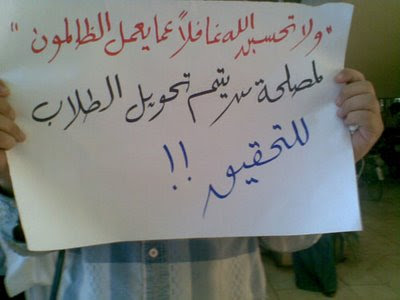 "ولا تحسبن الله غافلاً عما يعمل الظالمون"
لمصلحة من يتم تحويل الطلاب
للتحقيق !!